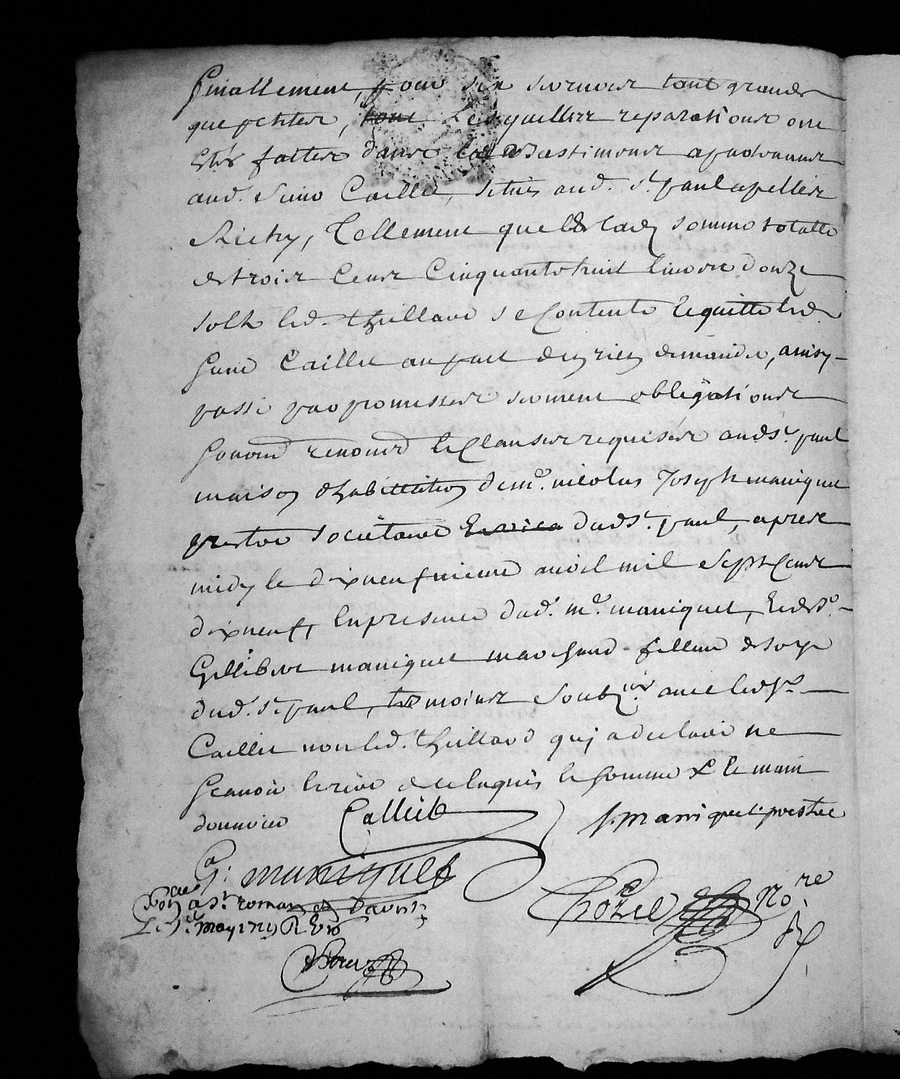 finallement, pour six journées tant grandes
que petites, lesquelles reparations ont
estés faittes dans les Bastiments apartenants
aud. Sieur Caillet, situés aud. St. paul apellés
Richy, Tellement que de lad. somme totalle
de trois Cents Cinquante huit livres douze
sols led. thillard se Contente & quitte led.
sieur Caillet au fait den rien demander, ainsy
passé par promesses serment obligations
renond. & Clauses requises aud. St. paul
maison dhabittation de mre. nicolas Joseph maniquet
prestre societaire dud. St. paul, apres
midy le dixneufvieme avril mil Sept Cents
dixneuf, En presence dud. mre. maniquet, & de Sr.
Gillibert maniquet marchand filleur de soye
dud. St. paul, tesmoins soubz.nes avec led. Sr.
Caillet non led. thillard qui a declaré ne
scavoir escrire de ce enquis & somme & le main
Caillet
J. maniquet prestre
G. maniquet
a St. roman
may 1719
Nore.